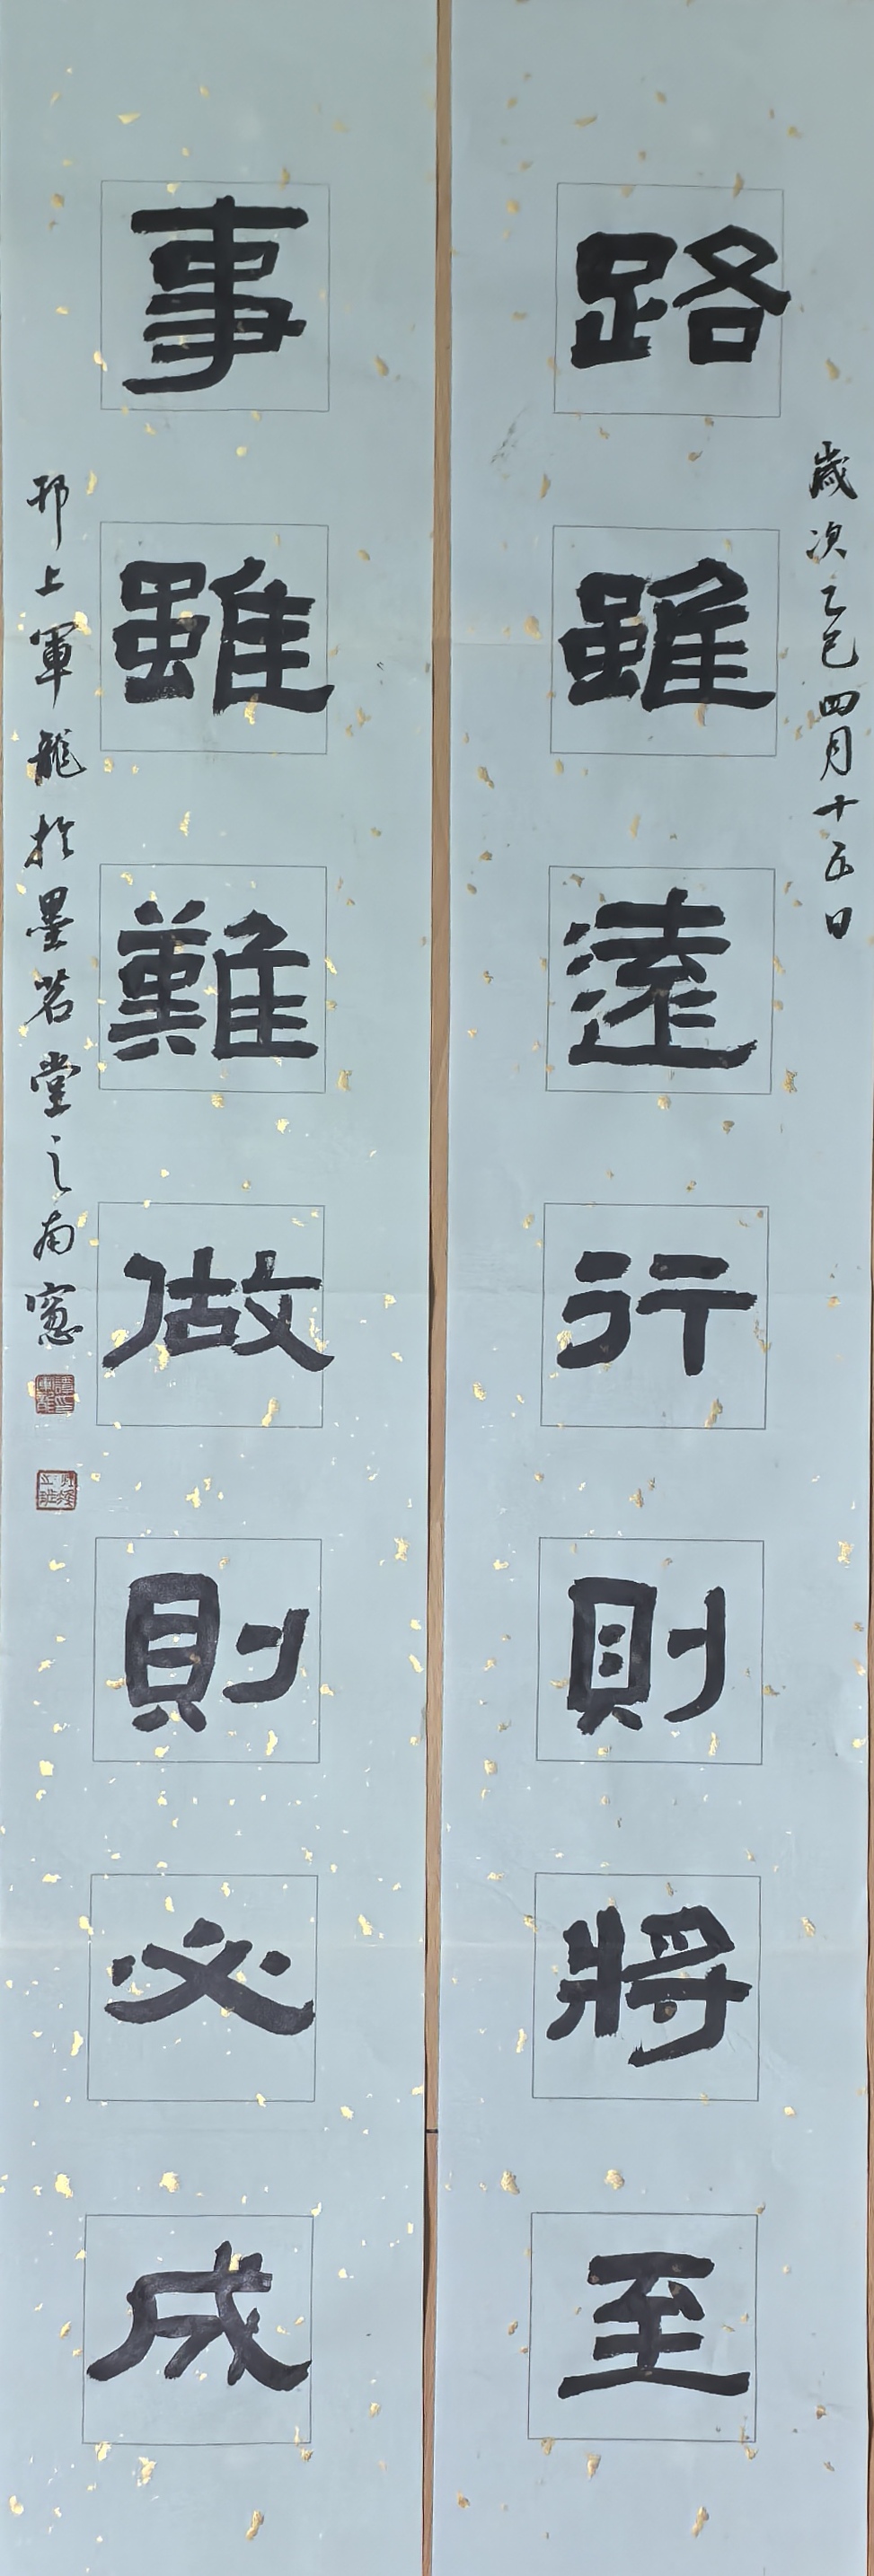 歲次乙巳四月十五日
路雖遠行則將至
事雖難做則必成
邗上軍龍於墨茗堂之南窓